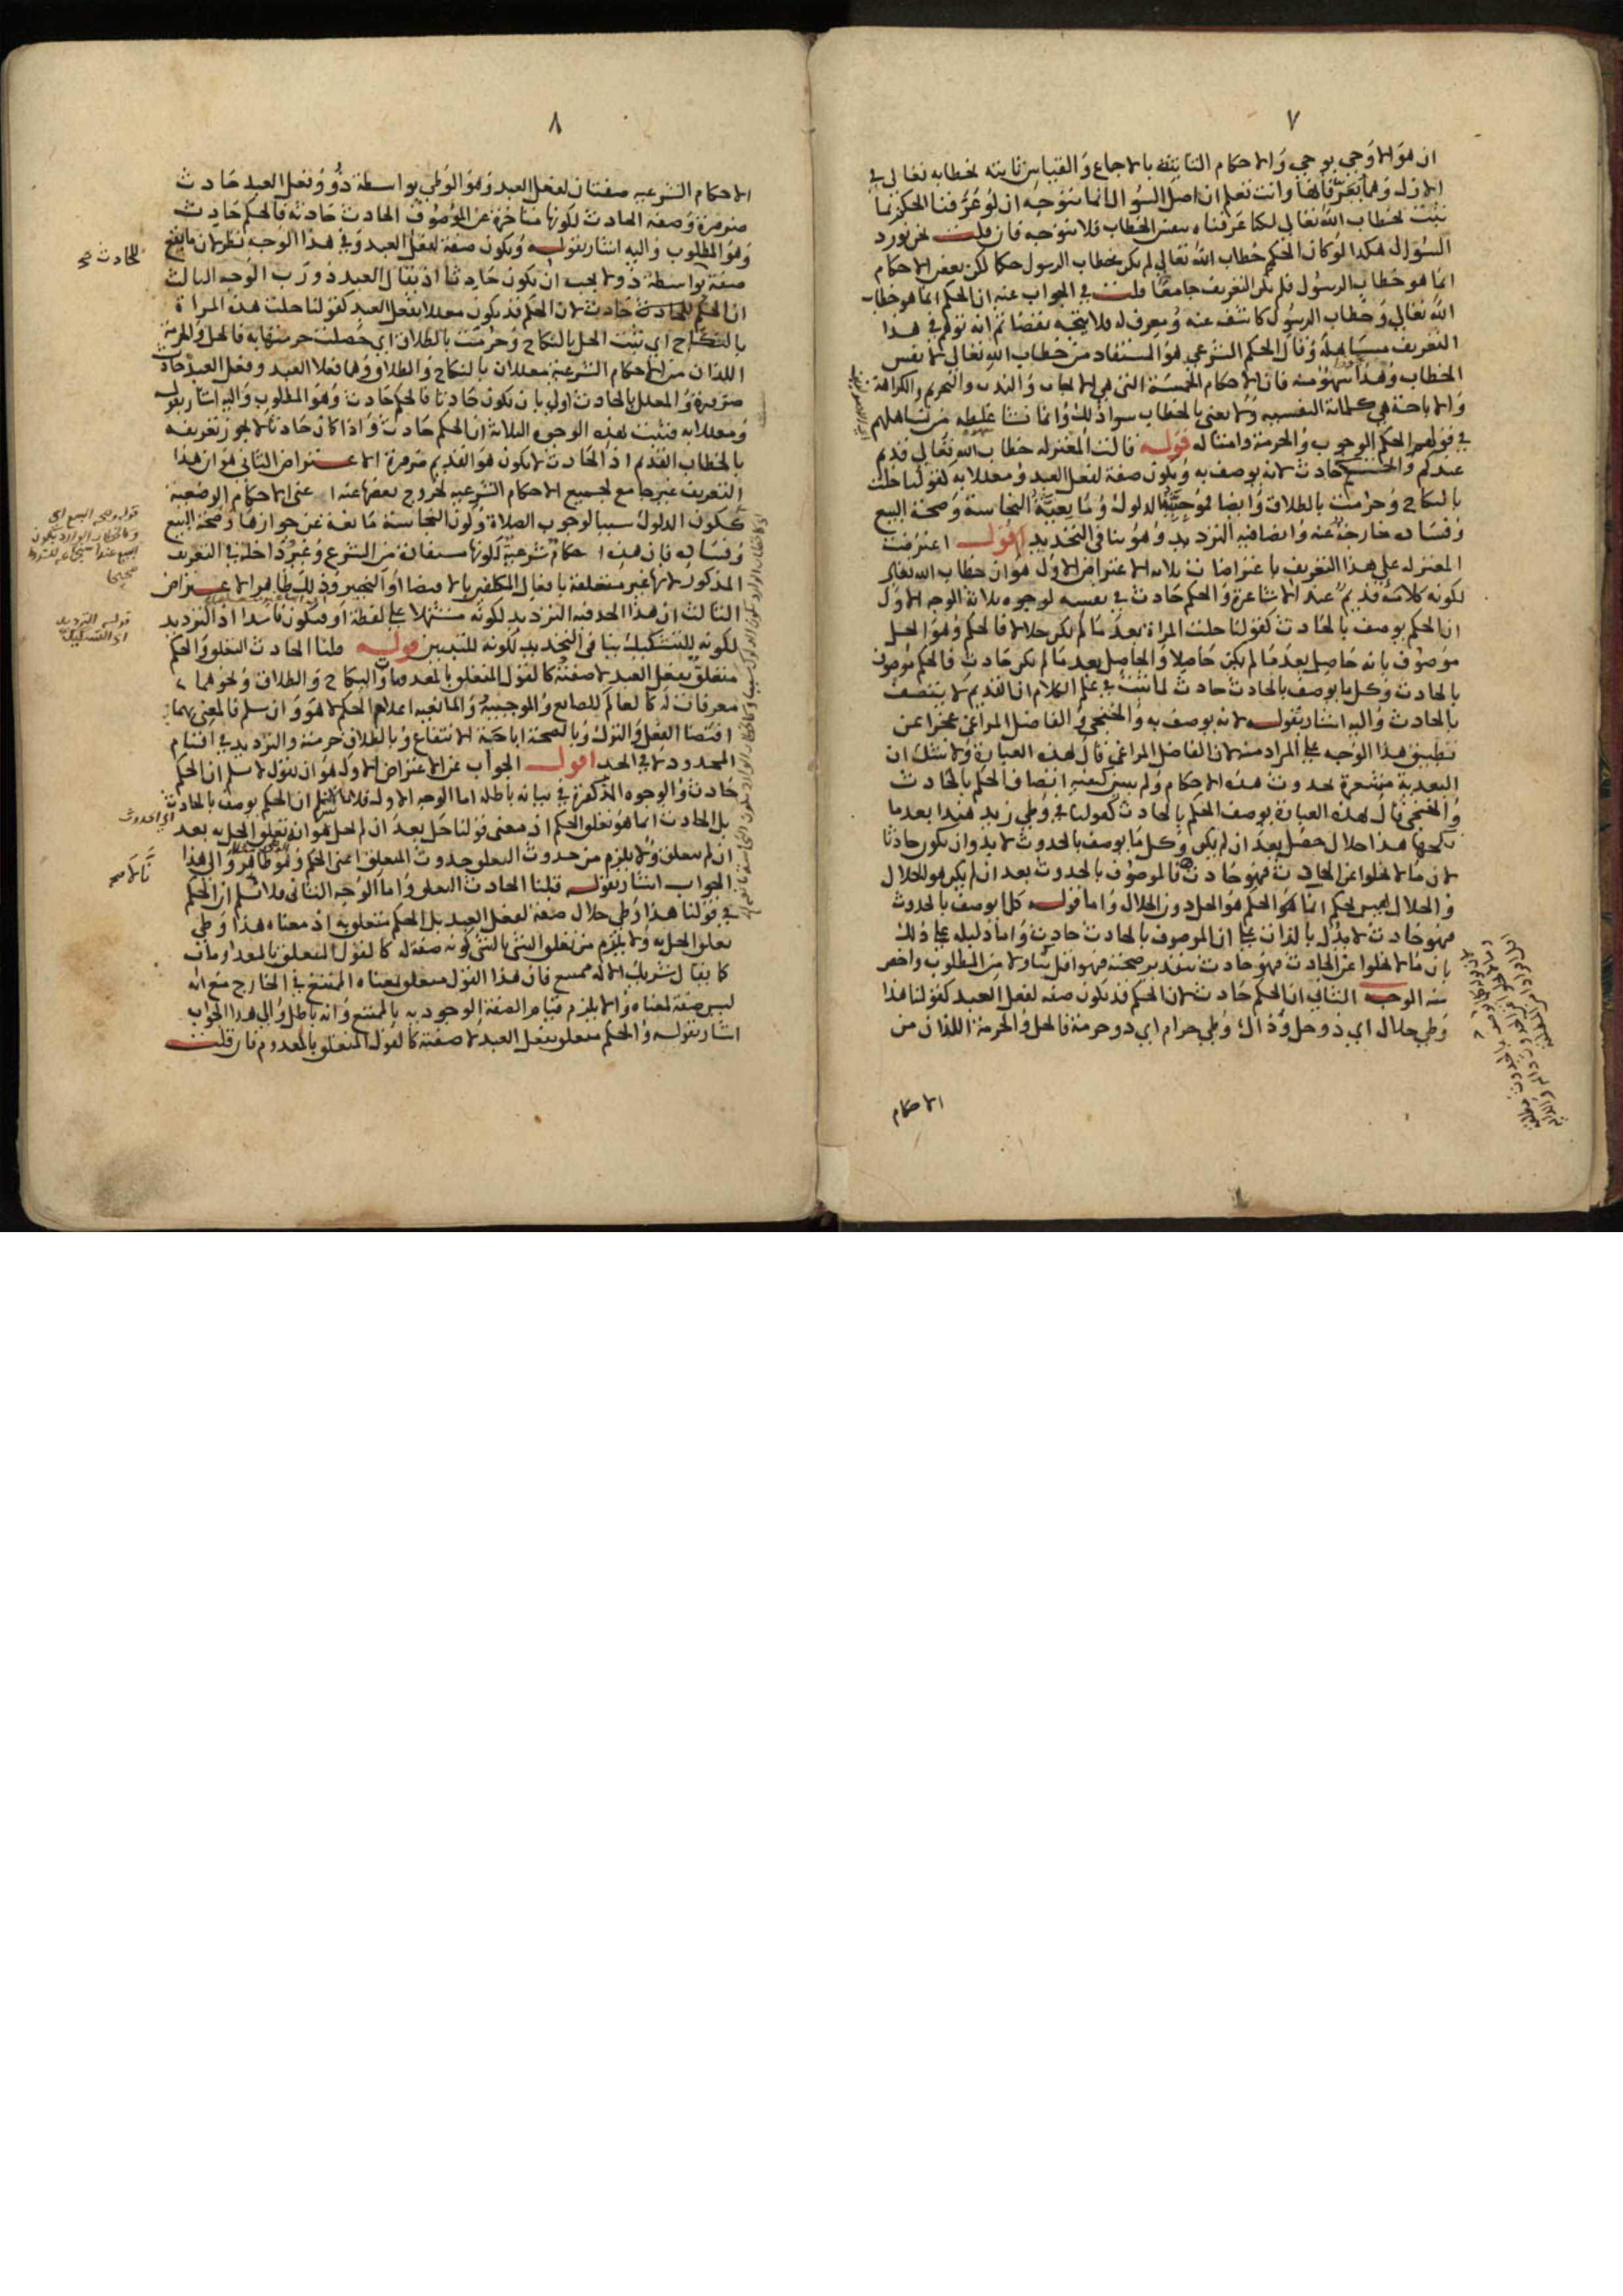 ٧
ان هو الا وحي يوحي والاحكام الثابتة بالاجماع والقياس ثابته بخطابه تعالى في
الازل وهما معرفا لها وانت تعلم ان اصل السؤال انما يتوجه ان لو عرفنا الحكم بما
ثبت بخطاب الله تعالى لكنا عرفناه بنفس الخطاب فلا يتوجه فان قلت نحن نورد
السؤال هكذا لو كان الحكم خطاب الله تعالى لم يكن خطاب الرسول حكما لكن بعض الاحكام
انما هو خطاب الرسول فلم يكن التعريف جامعا قلت في الجواب عنه ان الحكم انما هو خطاب
الله تعالى وخطاب الرسول كاشف عنه ومعرف له فلا يتجه نقضا ثم انه توهم في هذا
التعريف مساهلة وقال الحكم الشرعي هو المستفاد من خطاب الله تعالى لا نفس
الخطاب وهذا سهو منه فان الاحكام الخمسة التي هي الايجاب والندب والتحريم والكراهة
والاباحة هي كلماته النفسيه ولا نعني بالخطاب سوا ذلك وانما نشا غلطه من تساهلهم
في قولهم الحكم الوجوب والحرمة وامثاله قوله قالت المعتزله خطاب الله تعالى قديم
عندكم والحكم حادث لانه يوصف به ويكون صفة لفعل العبد ومعللا به كقولنا حلت
بالنكاح وحرمت بالطلاق وايضا موجبية الدلوك ومانعية النجاسة وصحة البيع
وفساده خارجة عنه وايضا فيه الترديد وهو ينافي التحديد اقول اعترضت
المعتزله على هذا التعريف باعتراضات ثلاثة الاعتراض الاول هو ان خطاب الله تعالى
لكونه كلامه قديم عند الاشاعرة والحكم حادث في نفسه لوجوه ثلاثة الوجه الاول
ان الحكم يوصف بالحادث كقولنا حلت المراة بعد ما لم يكن حلالا فالحكم وهو الحل
موصوف بانه حاصل بعد ما لم يكن حاصلا والحاصل بعد ما لم يكن حادث فالحكم موصوف
بالحادث وكل ما يوصف بالحادث حادث لما ثبت في علم الكلام ان القديم لا يتصف
بالحادث واليه اشار بقوله لانه يوصف به والخنجي والفاضل المراغي عجزا عن
تطبيق هذا الوجه على المراد منه لان الفاضل المراغي قال هذه العبارة ولا شك ان
البعدية مشعرة بحدوث هذه الاحكام ولم يبين كيفية اتصاف الحكم بالحادث
والخنجي قال هذه العبارة يوصف الحكم بالحادث كقولنا في وطي زيد هندا بعد ما
نكحها هذا حلال حصل بعد ان لم يكن وكل ما يوصف بالحدوث لا بد وان يكون حادثا
لان ما لا يخلوا عن الحادث فهو حادث فالموصوف بالحدوث بعد ان لم يكن هو الحلال
والحلال ليس بحكم انما الحكم هو الحل دون الحلال واما قوله كل ما يوصف بالحدوث
فهو حادث لا يدل بالذات على ان الموصوف بالحادث حادث واما دليله على ذلك
بان ما لا يخلوا عن الحادث فهو حادث بتقدير صحته فهو اقل تناولا من المطلوب واخص
منه الوجه الثاني ان الحكم حادث لان الحكم قد يكون صفه لفعل العبد كقولنا هذا
وطي حلال اي ذو حل وذاك وطي حرام اي ذو حرمة فالحل والحرمة اللذان من
الاحكام
٨
الاحكام الشرعيه صفتان لفعل العبد وهو الوطي بواسطة ذو وفعل العبد حادث
ضرورة وصفه الحادث لكونها متاخرة عن الموصوف الحادث حادثه فالحكم حادث
وهو المطلوب واليه اشار بقوله ويكون صفة لفعل العبد وفي هذا الوجه نظر لان ما يقع
صفة بواسطة ذو لا يجب ان يكون حادثا اذ يقال العبد ذو رب الوجه الثالث
ان الحكم حادث لان الحكم قد يكون معللا بفعل العبد كقولنا حلت هذه المراة
بالنكاح اي ثبت الحل بالنكاح وحرمت بالطلاق اي حصلت حرمتها به فالحل والحرمة
اللذان من الاحكام الشرعية معللان بالنكاح والطلاق وهما فعلا العبد وفعل العبد حادث
ضرورة والمعلل بالحادث اولى بان يكون حادثا فالحكم حادث وهو المطلوب واليه اشار بقوله
ومعللا به فثبت بهذه الوجوه الثلاثة ان الحكم حادث واذا كان حادثا لا يجوز تعريفه
بالخطاب القديم اذ الحادث لا يكون هو القديم ضرورة الاعتراض الثاني هو ان هذا
التعريف غير جامع لجميع الاحكام الشرعيه لخروج بعضها عنه اعني الاحكام الوضعية
ككون الدلوك سببا لوجوب الصلاة وكون النجاسة مانعة عن جوازها وصحة البيع
وفساده فان هذه احكام شرعية لكونها مستفادة من الشرع وغير داخلة في التعريف
المذكور لانها غير متعلقة بافعال المكلفين بالاقتضا او التخيير وذلك ظاهر الاعتراض
الثالث ان هذا الحد فيه الترديد لكونه مشتملا على لفظة او فيكون فاسدا اذ الترديد
لكونه للتشكيك ينافي التحديد لكونه للتبيين قوله قلنا الحادث التعلق والحكم
متعلق بفعل العبد لا صفته كالقول المتعلق بالمعدومات والنكاح والطلاق ونحوهما
معرفات له كالعالم للصانع والموجبية والمانعيه اعلام الحكم لا هو وان سلم فالمعنى بهما
اقتضا الفعل والترك وبالصحة اباحة الانتفاع وبالبطلان حرمته والترديد في اقسام
المحدود لا في الحد اقول الجواب عن الاعتراض الاول هو ان نقول لا نسلم ان الحكم
حادث والوجوه المذكورة في بيانه باطله اما الوجه الاول فلانا لا نسلم ان الحكم يوصف بالحادث
بل الحادث انما هو تعلق الحكم اذ معنى قولنا حل بعد ان لم يحل هو انه تعلق الحل به بعد
ان لم يتعلق ولا يلزم من حدوث التعلق حدوث المتعلق اعني الحكم وهو ظاهر والى هذا
الجواب اشار بقوله قلنا الحادث التعلق واما الوجه الثاني فلا نسلم ان الحكم
في قولنا هذا وطي حلال صفة لفعل العبد بل الحكم متعلق به اذ معناه هذا وطي
تعلق الحل به ولا يلزم من تعلق الشي بالشي كونه صفة له كالقول المتعلق بالمعدومات
كما يقال شريك الاله ممتنع فان هذا القول متعلق بمعناه الممتنع في الخارج مع انه
ليس صفة لمعناه والا يلزم قيام الصفة الوجوديه بالممتنع وانه باطل والى هذا الجواب
اشار بقوله والحكم متعلق بفعل العبد لا صفته كالقول المتعلق بالمعدوم فان قلت
للحادث صح
قوله وصحة البيع اي
وكالخطاب الوارد بكون
البيع عند استجماعه للشروط
صحيحا
قوله الترديد
اي التشكيك
اي الحدوث